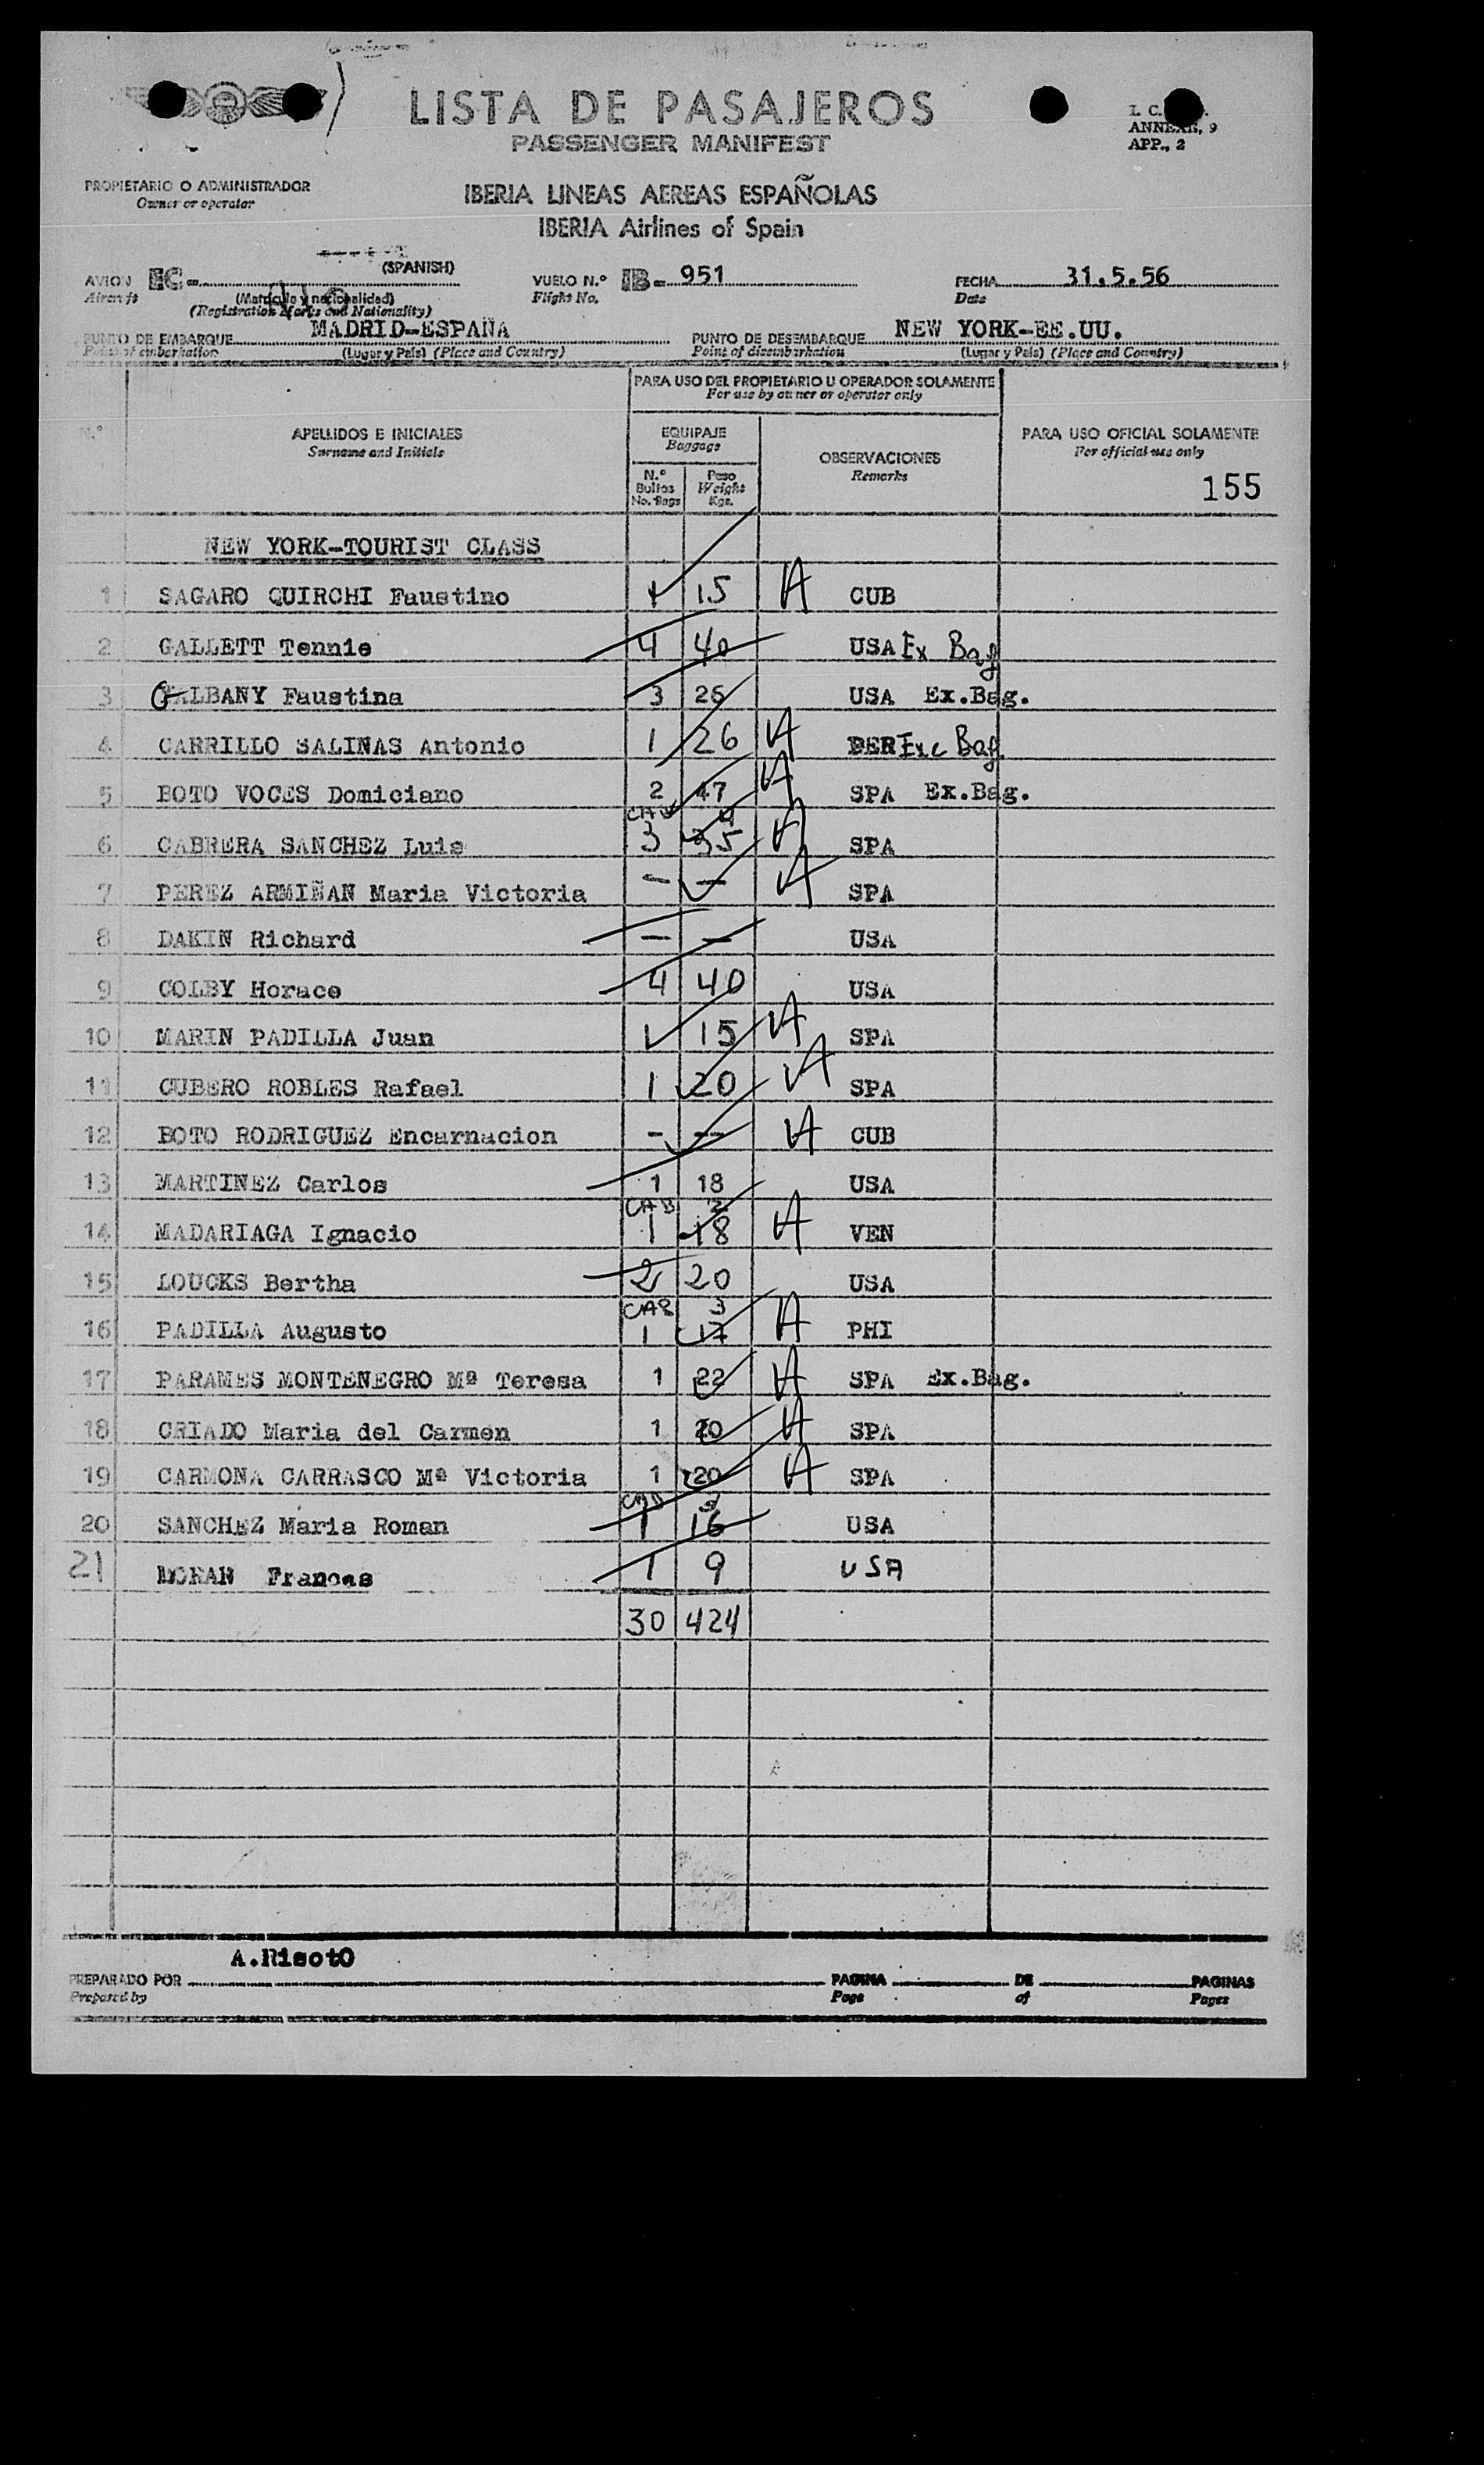 LISTA DE PASAJEROS
PASSENGER MANIFEST
ANNEXE, 9
APP., 2
PROPIETARIO O ADMINISTRADOR
Owner or operator
IBERIA LINEAS AEREAS ESPAÑOLAS
IBERIA Airlines of Spain
AVION EC- (SPANISH) VUELO N.º IB- 951 FECHA 31.5.56
Aircraft (Matrícula y nacionalidad) Flight No. Date
(Registration Marks and Nationality)
PUNTO DE EMBARQUE MADRID-ESPAÑA PUNTO DE DESEMBARQUE NEW YORK-EE.UU.
Point of embarkation (Lugar y País) (Place and Country) Point of disembarkation (Lugar y País) (Place and Country)
PARA USO DEL PROPIETARIO U OPERADOR SOLAMENTE
For use by owner or operator only
N.º APELLIDOS E INICIALES EQUIPAJE OBSERVACIONES PARA USO OFICIAL SOLAMENTE
Surname and Initials Baggage Remarks For official use only
N.º Bultos Peso
No. Bags Weight Kgs.
155
NEW YORK-TOURIST CLASS
1 SAGARO QUIRCHI Faustino 1 15 CUB
2 GALLETT Tennie 4 40 USA Ex Bag
3 GALBANY Faustina 3 26 USA Ex.Bag.
4 CARRILLO SALINAS Antonio 1 26 DER Exc Bag
5 BOTO VOCES Domiciano 2 47 SPA Ex.Bag.
CAB 4
6 CABRERA SANCHEZ Luis 3 35 SPA
7 PEREZ ARMIÑAN Maria Victoria - - SPA
8 DAKIN Richard - - USA
9 COLBY Horace 4 40 USA
10 MARIN PADILLA Juan 1 15 SPA
11 CUBERO ROBLES Rafael 1 20 SPA
12 BOTO RODRIGUEZ Encarnacion - - CUB
13 MARTINEZ Carlos 1 18 USA
CAB 2
14 MADARIAGA Ignacio 1 18 VEN
15 LOUCKS Bertha 2 20 USA
CAB 3
16 PADILLA Augusto 1 17 PHI
17 PARAMES MONTENEGRO Mª Teresa 1 22 SPA Ex.Bag.
18 CRIADO Maria del Carmen 1 20 SPA
19 CARMONA CARRASCO Mª Victoria 1 20 SPA
CAB
20 SANCHEZ Maria Roman 1 16 USA
21 MORAN Frances 1 9 USA
30 424
A.RisotO
PREPARADO POR PAGINA DE PAGINAS
Prepared by Page of Pages